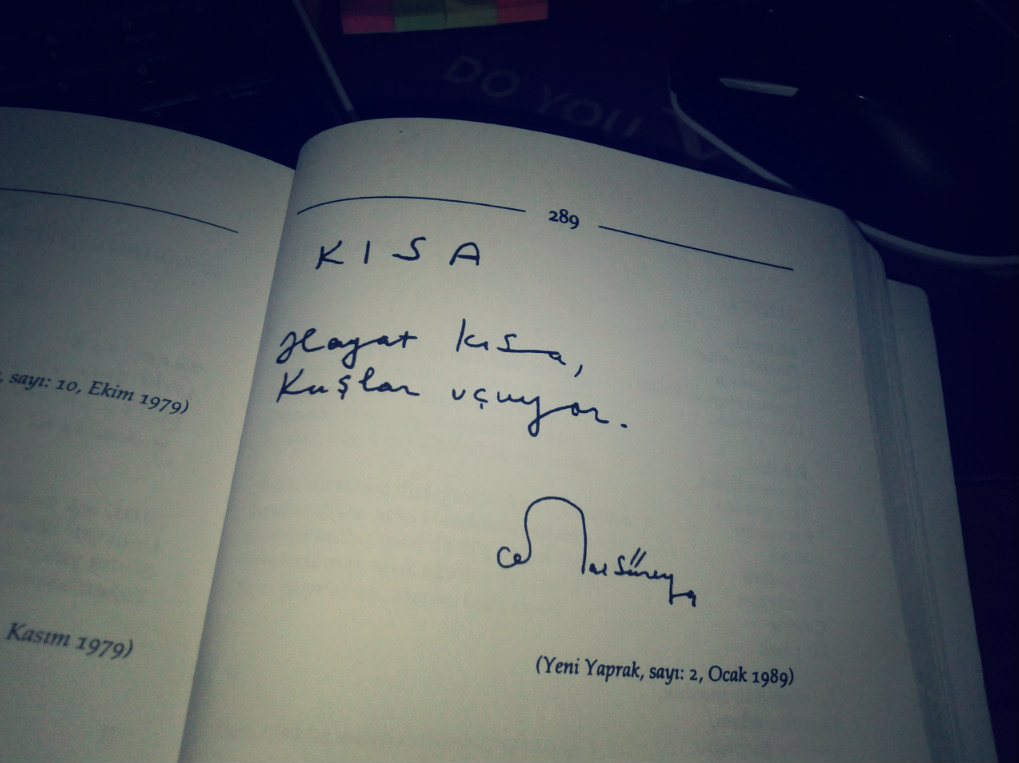 DO YOU
289
KISA
Hayat kısa,
Kuşlar uçuyor.
Cemal Süreya
(Yeni Yaprak, sayı: 2, Ocak 1989)
, sayı: 10, Ekim 1979)
Kasım 1979)